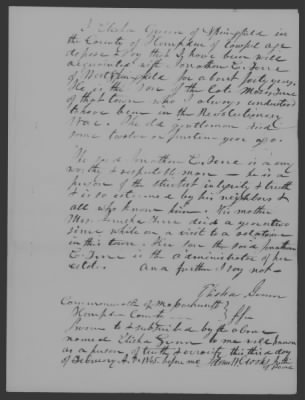 I Elisha Gunn of Springfield in
the County of Hampden of lawful age
depose & say that I have been well
acquainted with Jonathan E. Ferre
of West Springfield for about forty years.
He is the son of the late Moses Ferre
of that town who I always understood
to have been in the Revolutionary
War. The old gentleman died
some twelve or fourteen years ago.
The said Jonathan E. Ferre is a very
worthy & respectable man — he is a
person of the strictest integrity & truth
& is so esteemed by his neighbors &
all who know him. His mother
Mrs. Ferre died a year or two
since while on a visit to a relations
in this town. Her son the said Jonathan
E. Ferre is the administrator of her
estate. And further I say not —
Elisha Gunn
Commonwealth of Massachusetts
Hampden County ss
Sworn to & subscribed by the above
named Elisha Gunn to me well known
as a person of truth & veracity this third day
of February A.D. 1845. before me Justice
of Peace